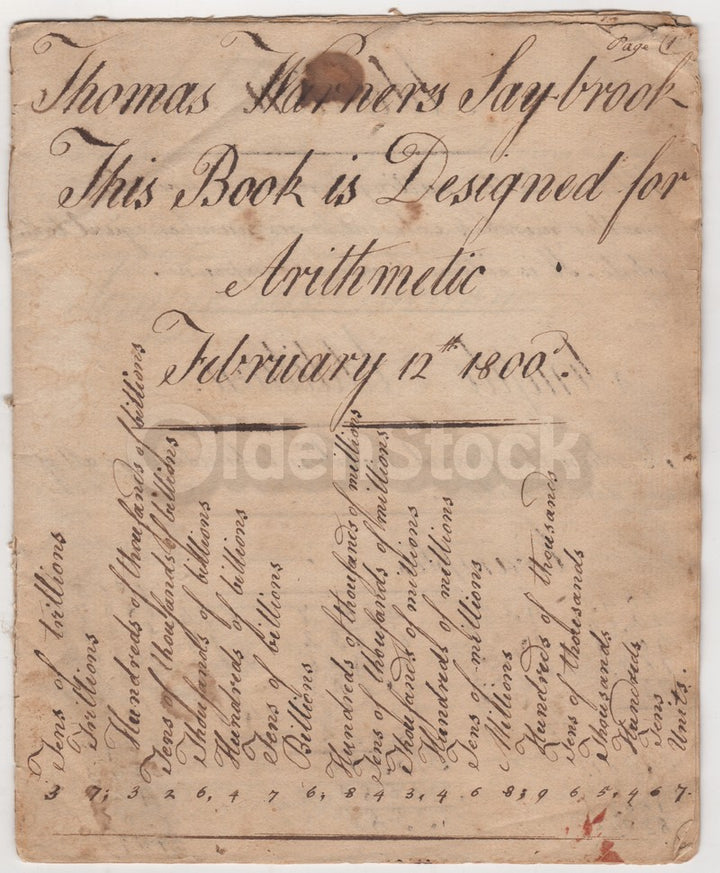 Page 1
Thomas Warners Say-brook
This Book is Designed for
Arithmetic
February 12th 1800.
OldenStock
Tens of trillions
Trillions
Hundreds of thousands of billions
Tens of thousands of billions
Thousands of billions
Hundreds of billions
Tens of billions
Billions
Hundreds of thousands of millions
Tens of thousands of millions
Thousands of millions
Hundreds of millions
Tens of millions
Millions
Hundreds of thousands
Tens of thousands
Thousands
Hundreds
Tens
Units.
3 7; 3 2 6, 4 7 6; 8 4 3, 4 6 8; 9 6, 5, 4 6 7.